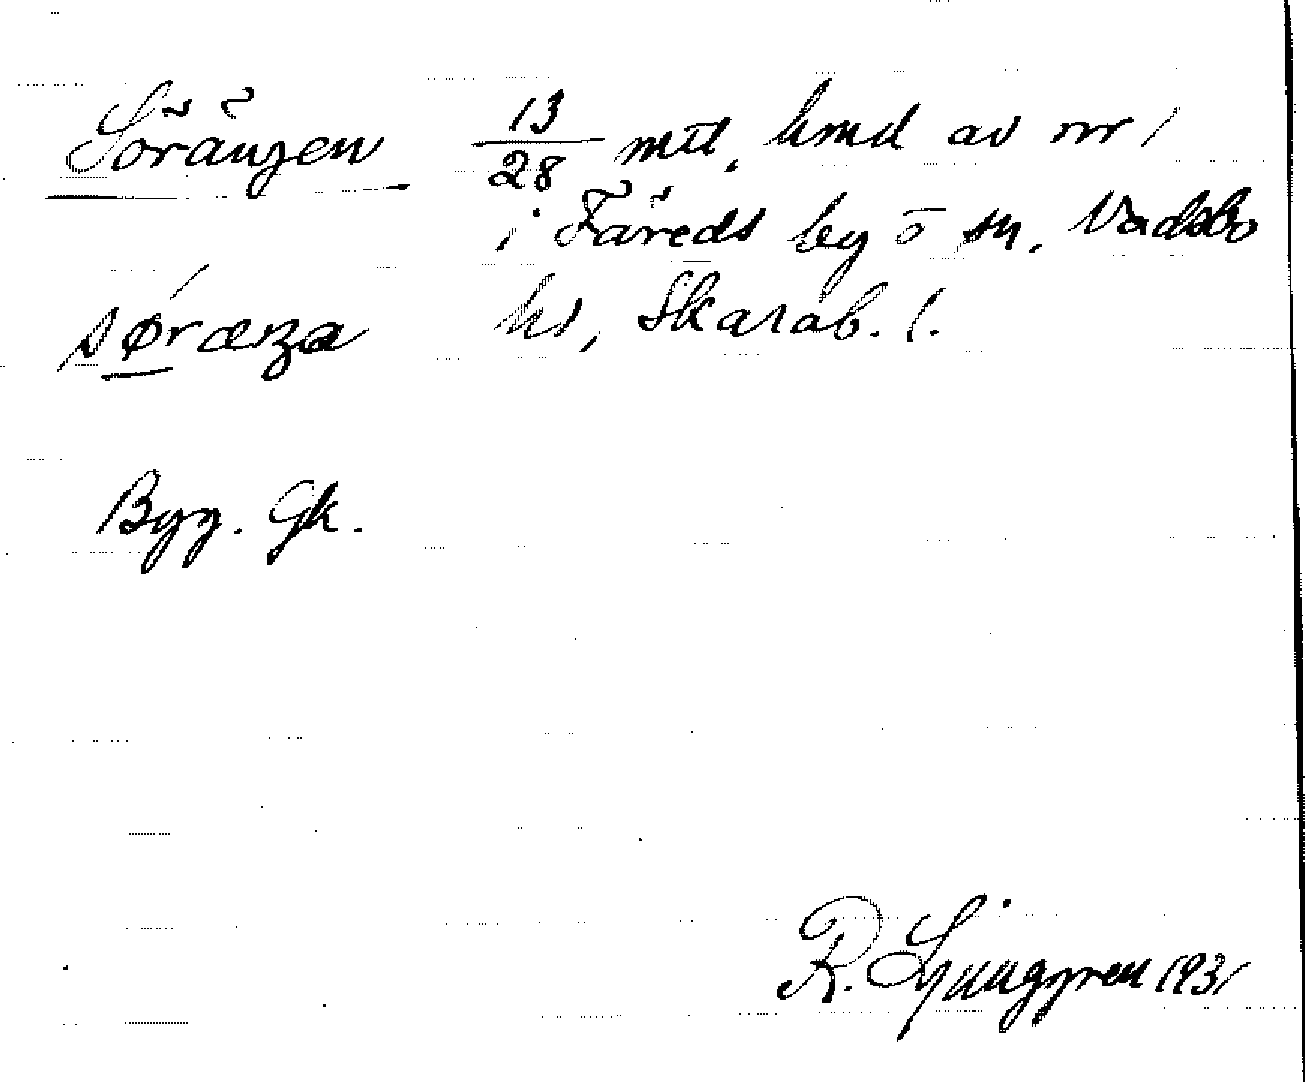 Sörängen 13/28 mtl, hmd av nr 1
i Färeds by o sn, Vadsbo
hd, Skarab. l.
søræŋa
Byg. Gk.
R. Ljunggren 1931